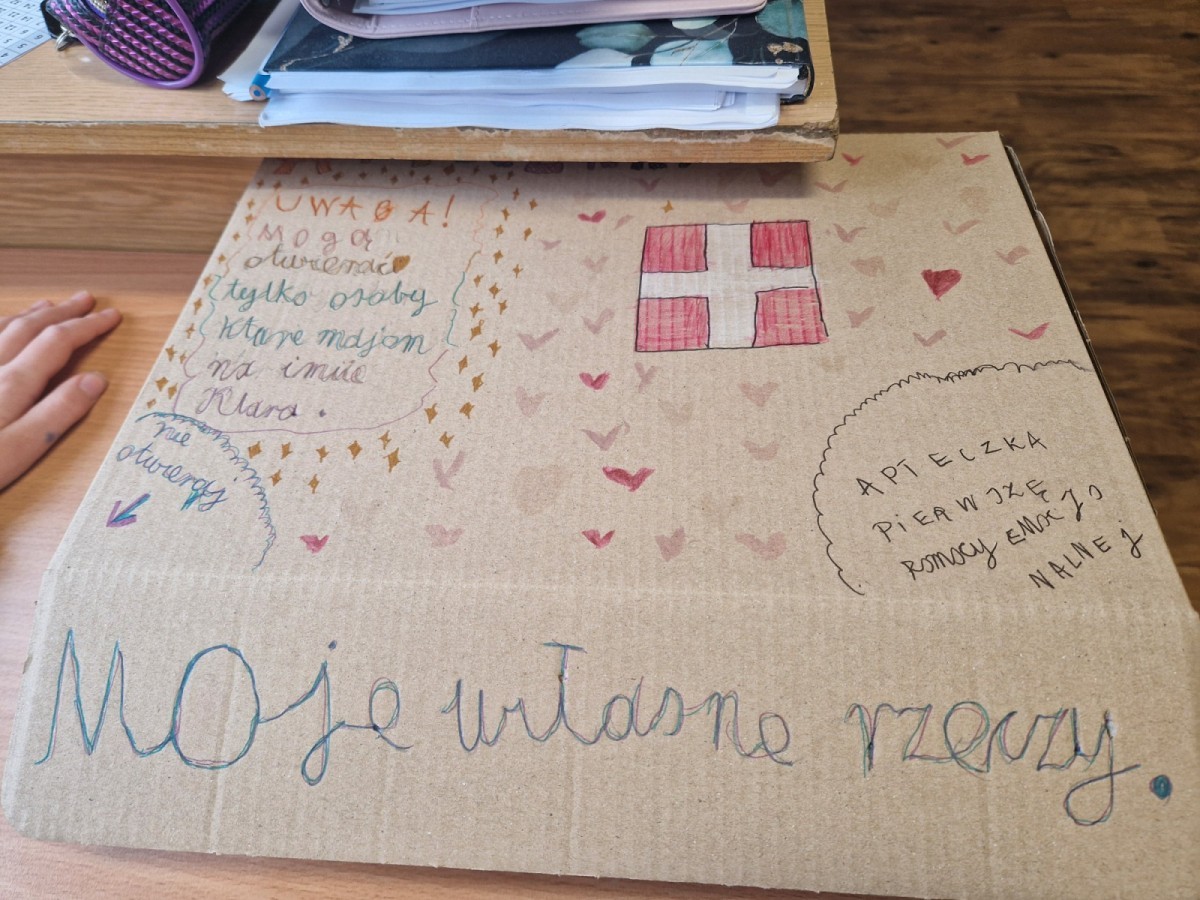 UWAGA!
Mogą
otwierać
tylko osoby
które majom
na imie
Klara.
nie
otwieraj
APTECZKA
PIERWSZĘ
POMOCY EMOCJO
NALNEJ
Moje własne rzeczy.